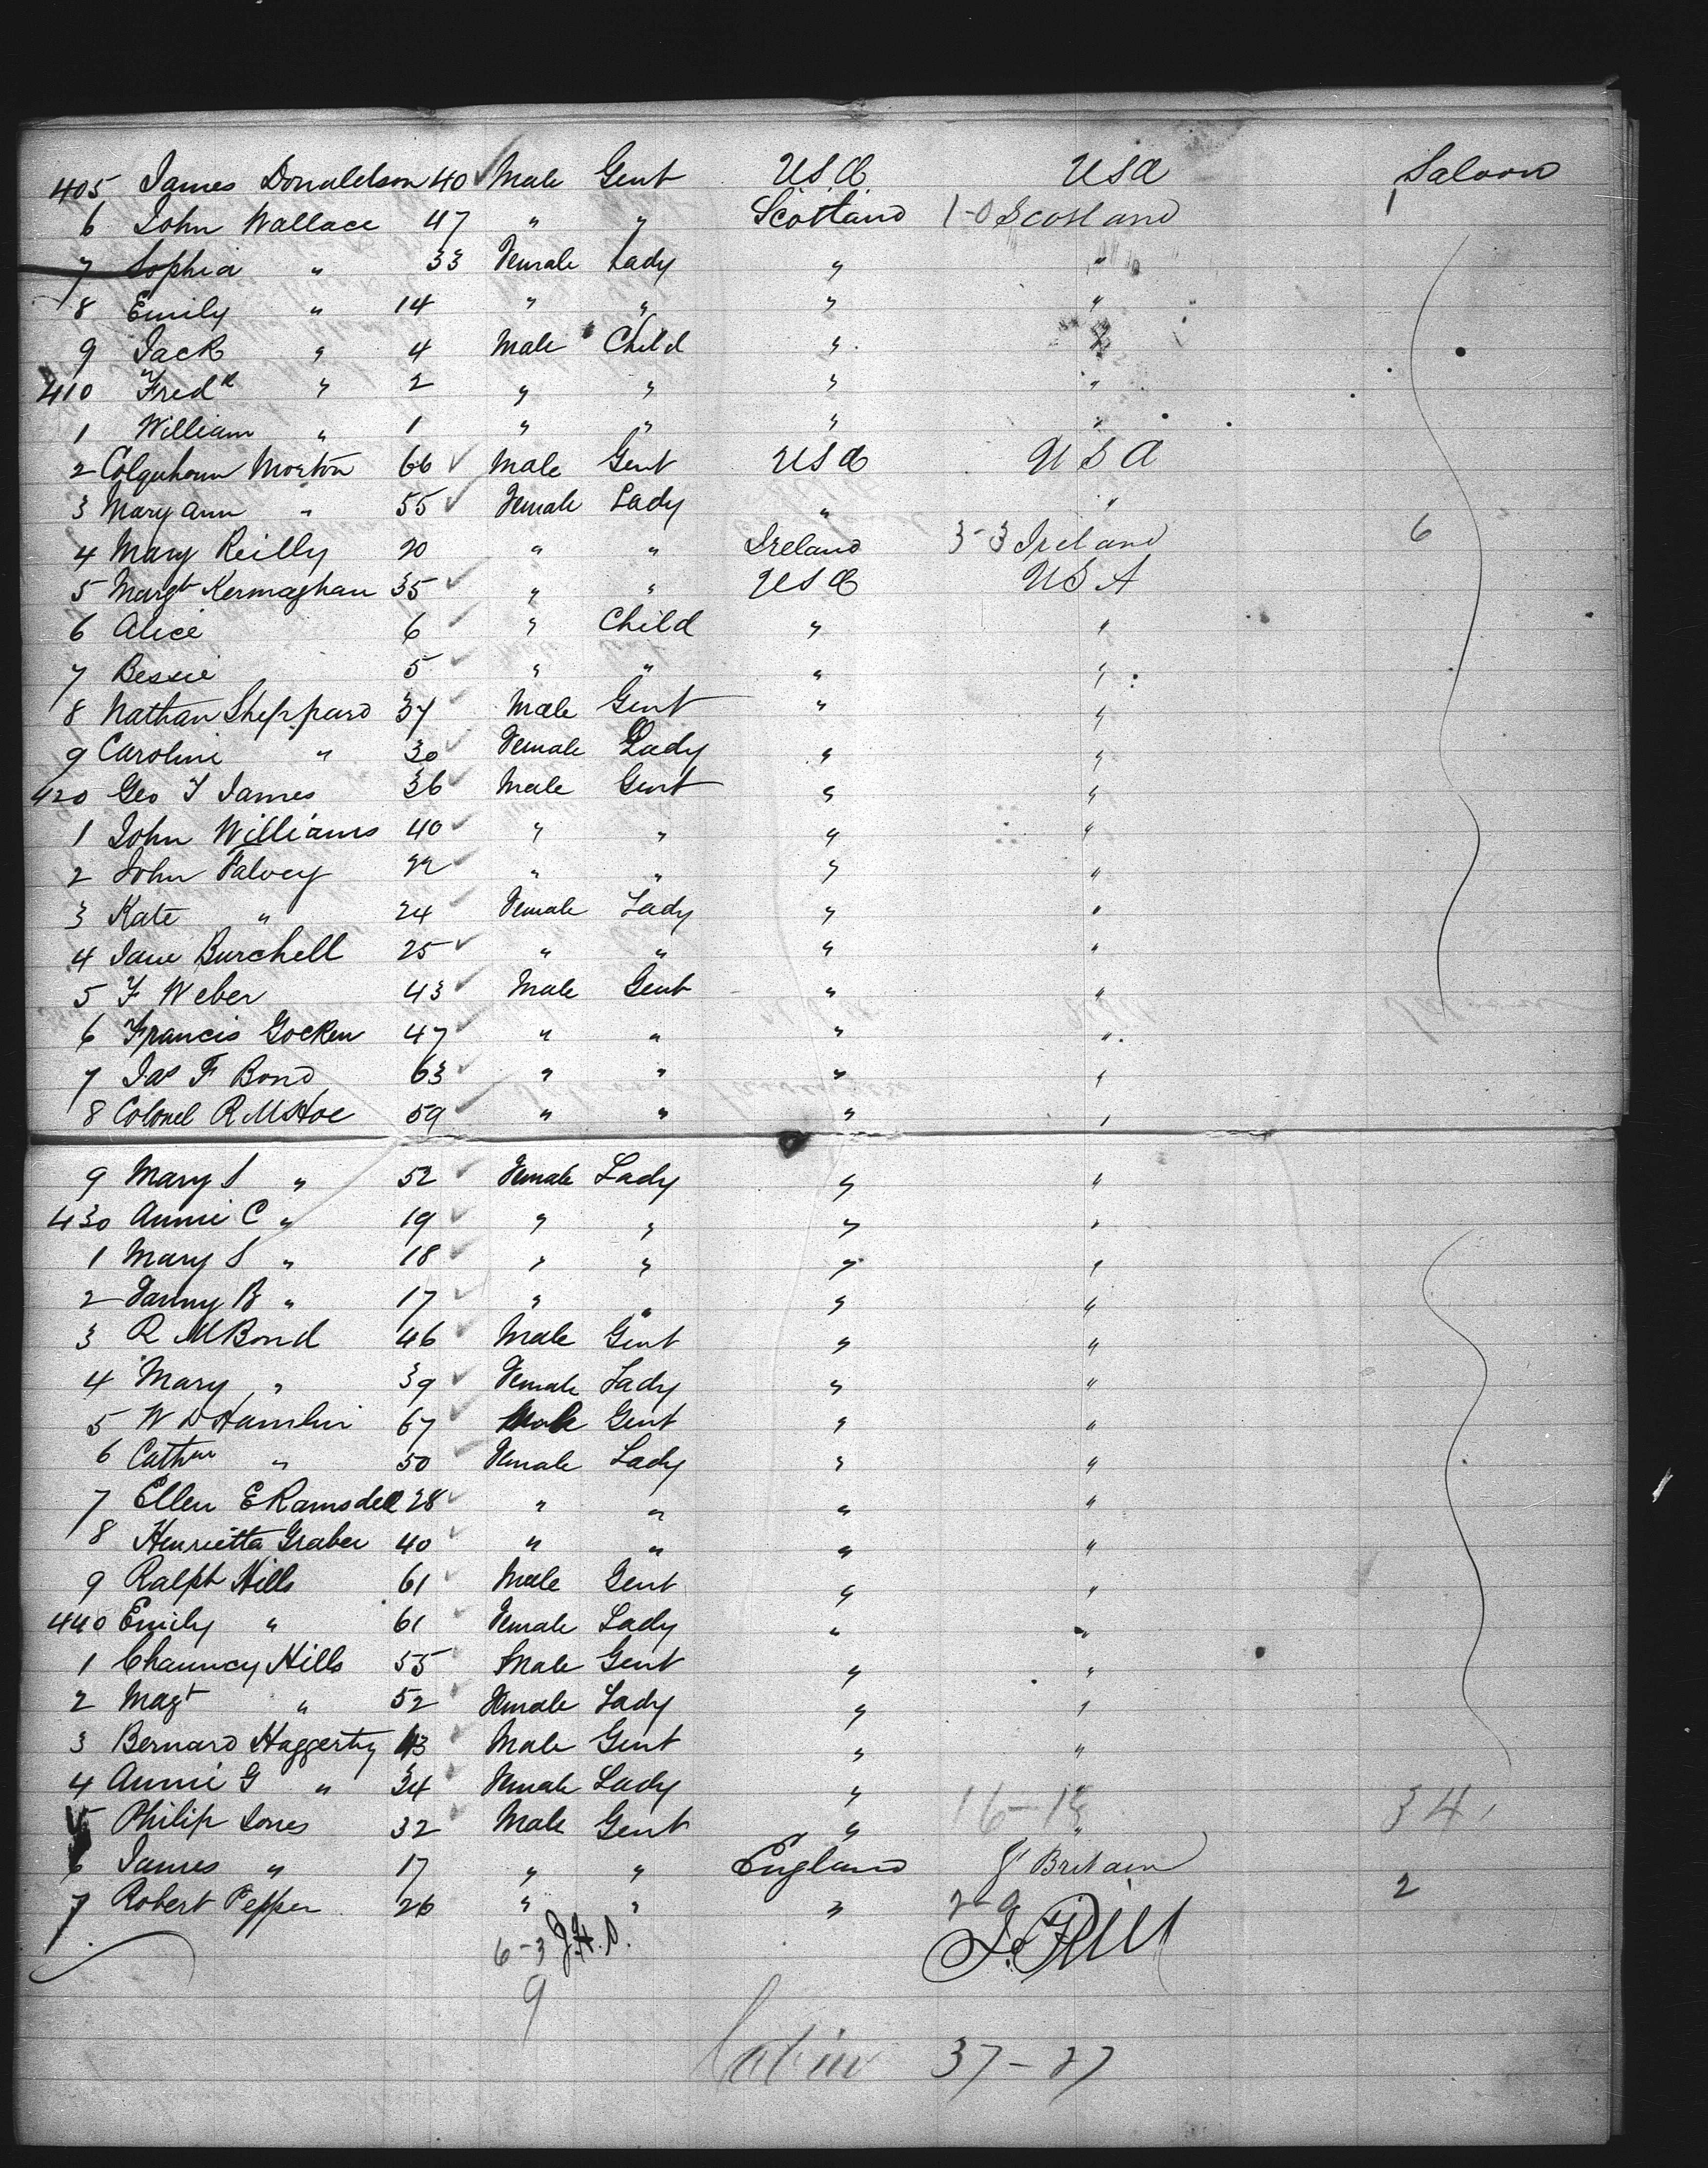 405 James Donaldson 40 Male Gent USA USA Saloon
6 John Wallace 47 " " Scotland 1-0 Scotland 1
7 Sophia " 33 Female Lady " "
8 Emily " 14 " " " "
9 Jack " 4 Male Child " "
410 Fredk " 2 " " " "
1 William " 1 " " " "
2 Colquhoun Morton 66 Male Gent USA USA
3 Mary Ann " 55 Female Lady " "
4 Mary Reilly 20 " " Ireland 3-3 Ireland 6
5 Margt Kernaghan 35 " " USA USA
6 Alice 6 " Child " "
7 Bessie 5 " " " "
8 Nathan Sheppard 37 Male Gent " "
9 Caroline " 30 Female Lady " "
420 Geo T James 36 Male Gent " "
1 John Williams 40 " " " "
2 John Falvey 22 " " " "
3 Kate " 24 Female Lady " "
4 Jane Burchell 25 " " " "
5 F Weber 43 Male Gent " "
6 Francis Gocken 47 " " " "
7 Jas F Bond 63 " " " "
8 Colonel R M Hoe 59 " " " "
9 Mary S " 52 Female Lady " "
430 Annie C " 19 " " " "
1 Mary S " 18 " " " "
2 Fanny B " 17 " " " "
3 R M Bond 46 Male Gent " "
4 Mary " 39 Female Lady " "
5 W D Hamlin 67 Male Gent " "
6 Cathne " 50 Female Lady " "
7 Ellen E Ramsdell 28 " " " "
8 Henrietta Graber 40 " " " "
9 Ralph Hills 61 Male Gent " "
440 Emily " 61 Female Lady " "
1 Chauncy Hills 55 Male Gent " "
2 Magt " 52 Female Lady " "
3 Bernard Haggerty 43 Male Gent " "
4 Annie G " 34 Female Lady " "
5 Philip Jones 32 Male Gent " 16-18 " 34
6 James " 17 " " England Gt Britain
7 Robert Pepper 26 " " " 2-0 2
6-3 J.H.S.
9
Cabin 37-27